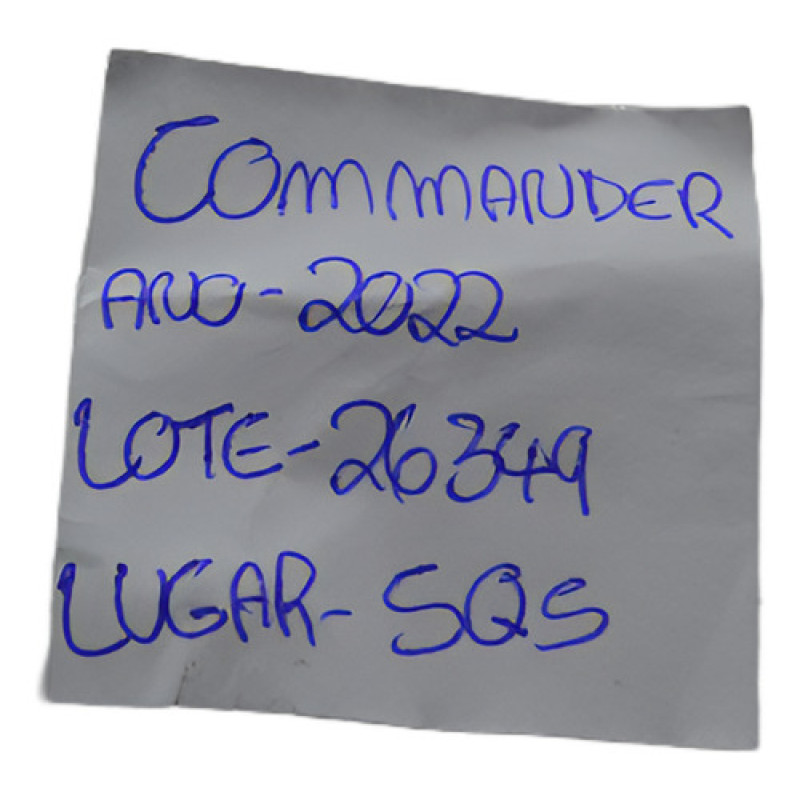 COMMANDER
ANO-2022
LOTE-26349
LUGAR-SQS